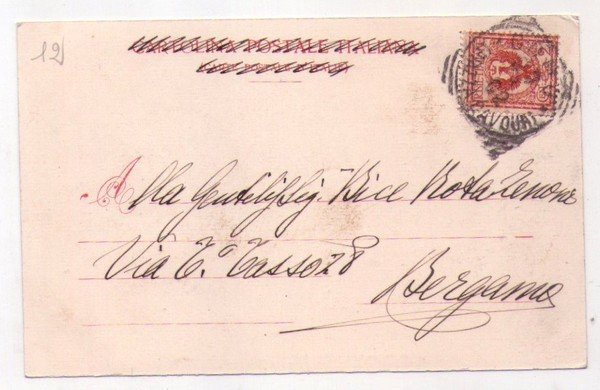 12
CARTOLINA POSTALE ITALIANA
Alla Gentiliss Sig. Bice Rota Zenoni
Via T. Tasso 28
Bergamo